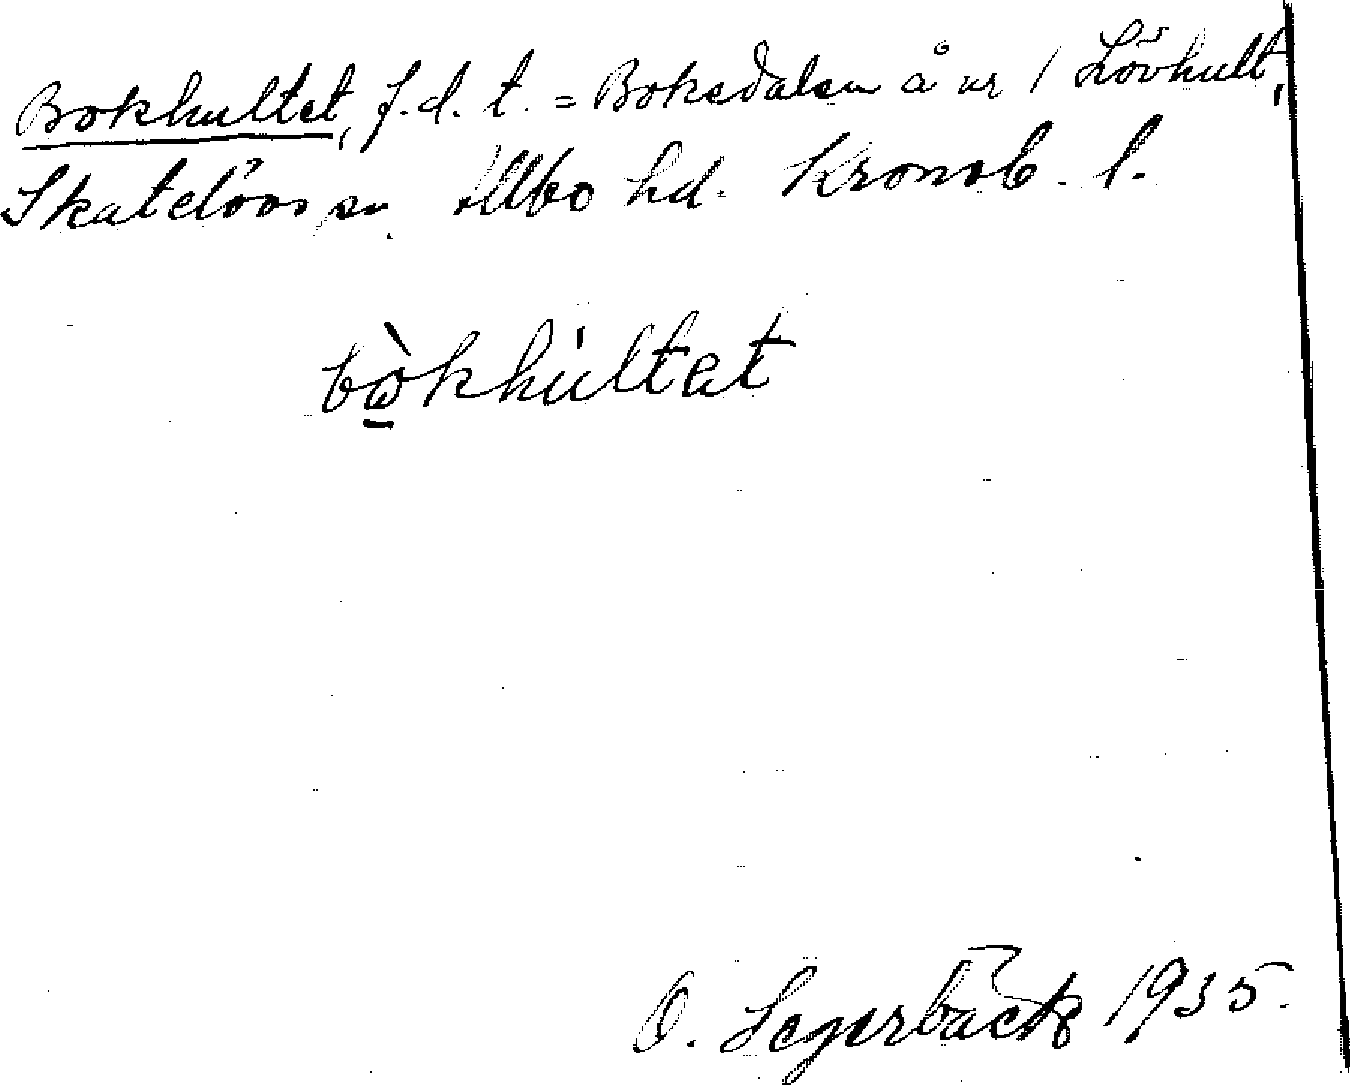 Bokhultet, f.d. t. = Boksdalen å nr 1 Lövhult,
Skatelövs sn. Allbo hd. Kronob. l.
bò̱̱khúltat
O. Segerbäck 1935.